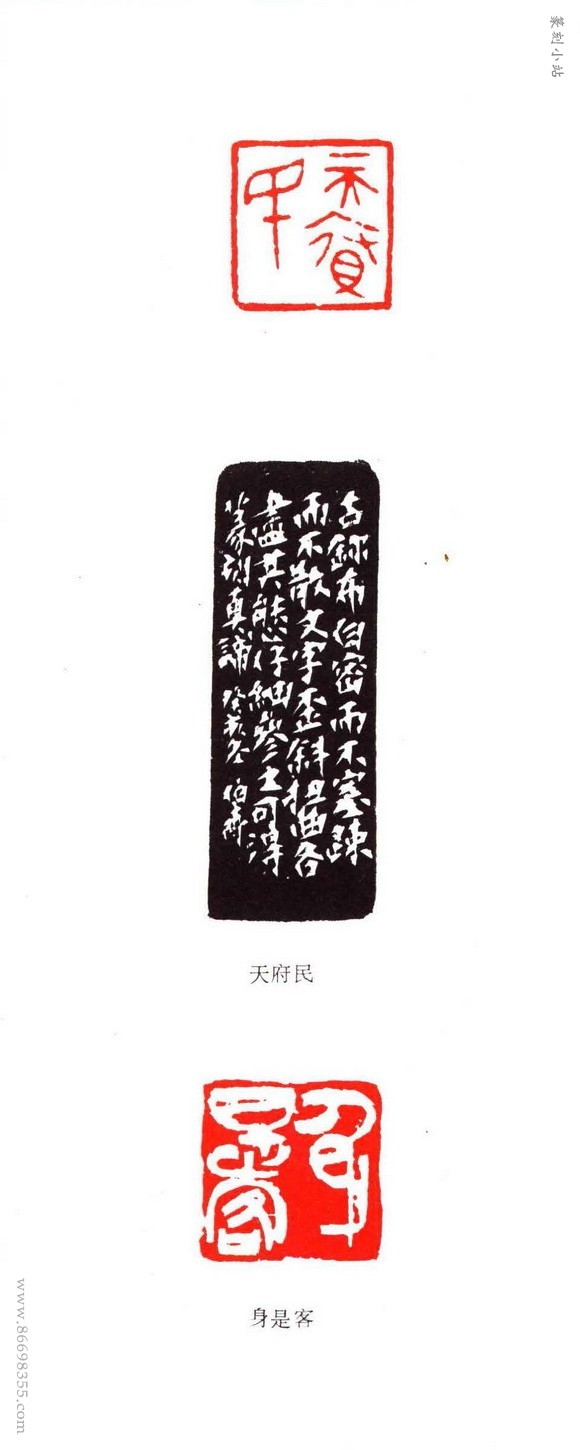 篆刻小站
天府民
古鉨布白密而不塞疎
而不散文字歪斜扭曲各
盡其態仔細參之可得
篆刻真諦 癸亥冬 伯齊
天府民
身是客
身是客
www.86698355.com